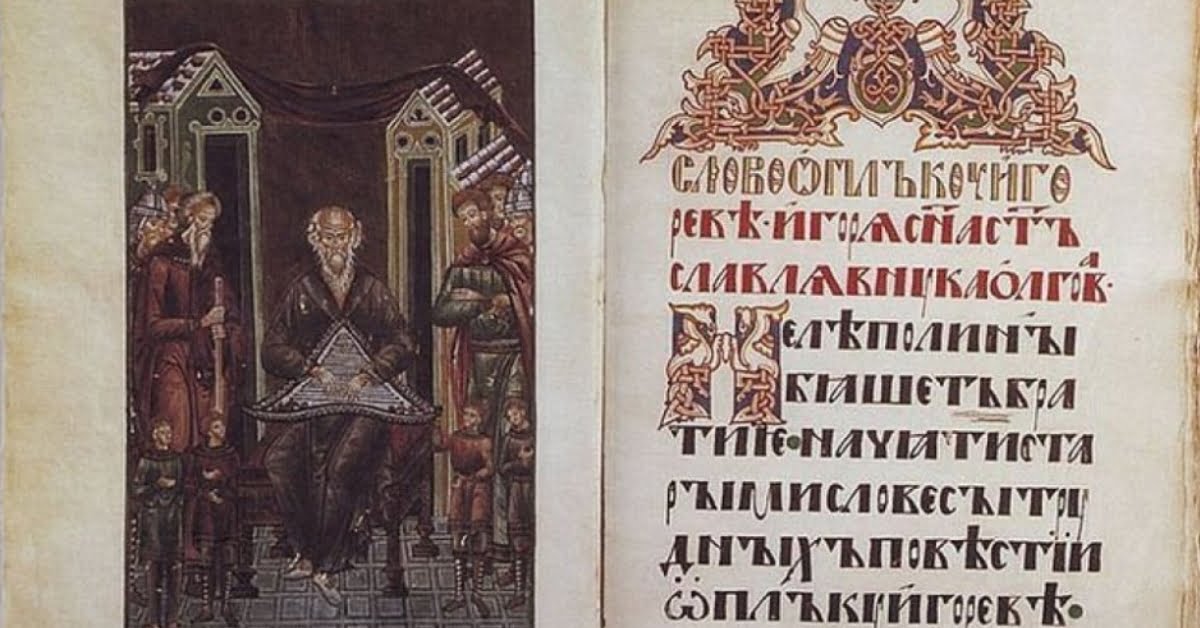 СЛОВОѾПЛЪКОУЙГО
РЕВѢ·ЙГОРѦСН҃АСТ҃Ъ
СЛАВЛѦВНУКАОЛГОВⷶ·
НЕЛѢПОЛИНЪІ
БꙖШЕТЬБРА
ТИѤ•НАЧꙖТИСТА
РЪІМИСЛОВЕСЪІТРУ
ДНЪІХЪПОВѢСТЇИ
ѾПЛЪКУЙГОРЕВѢ•